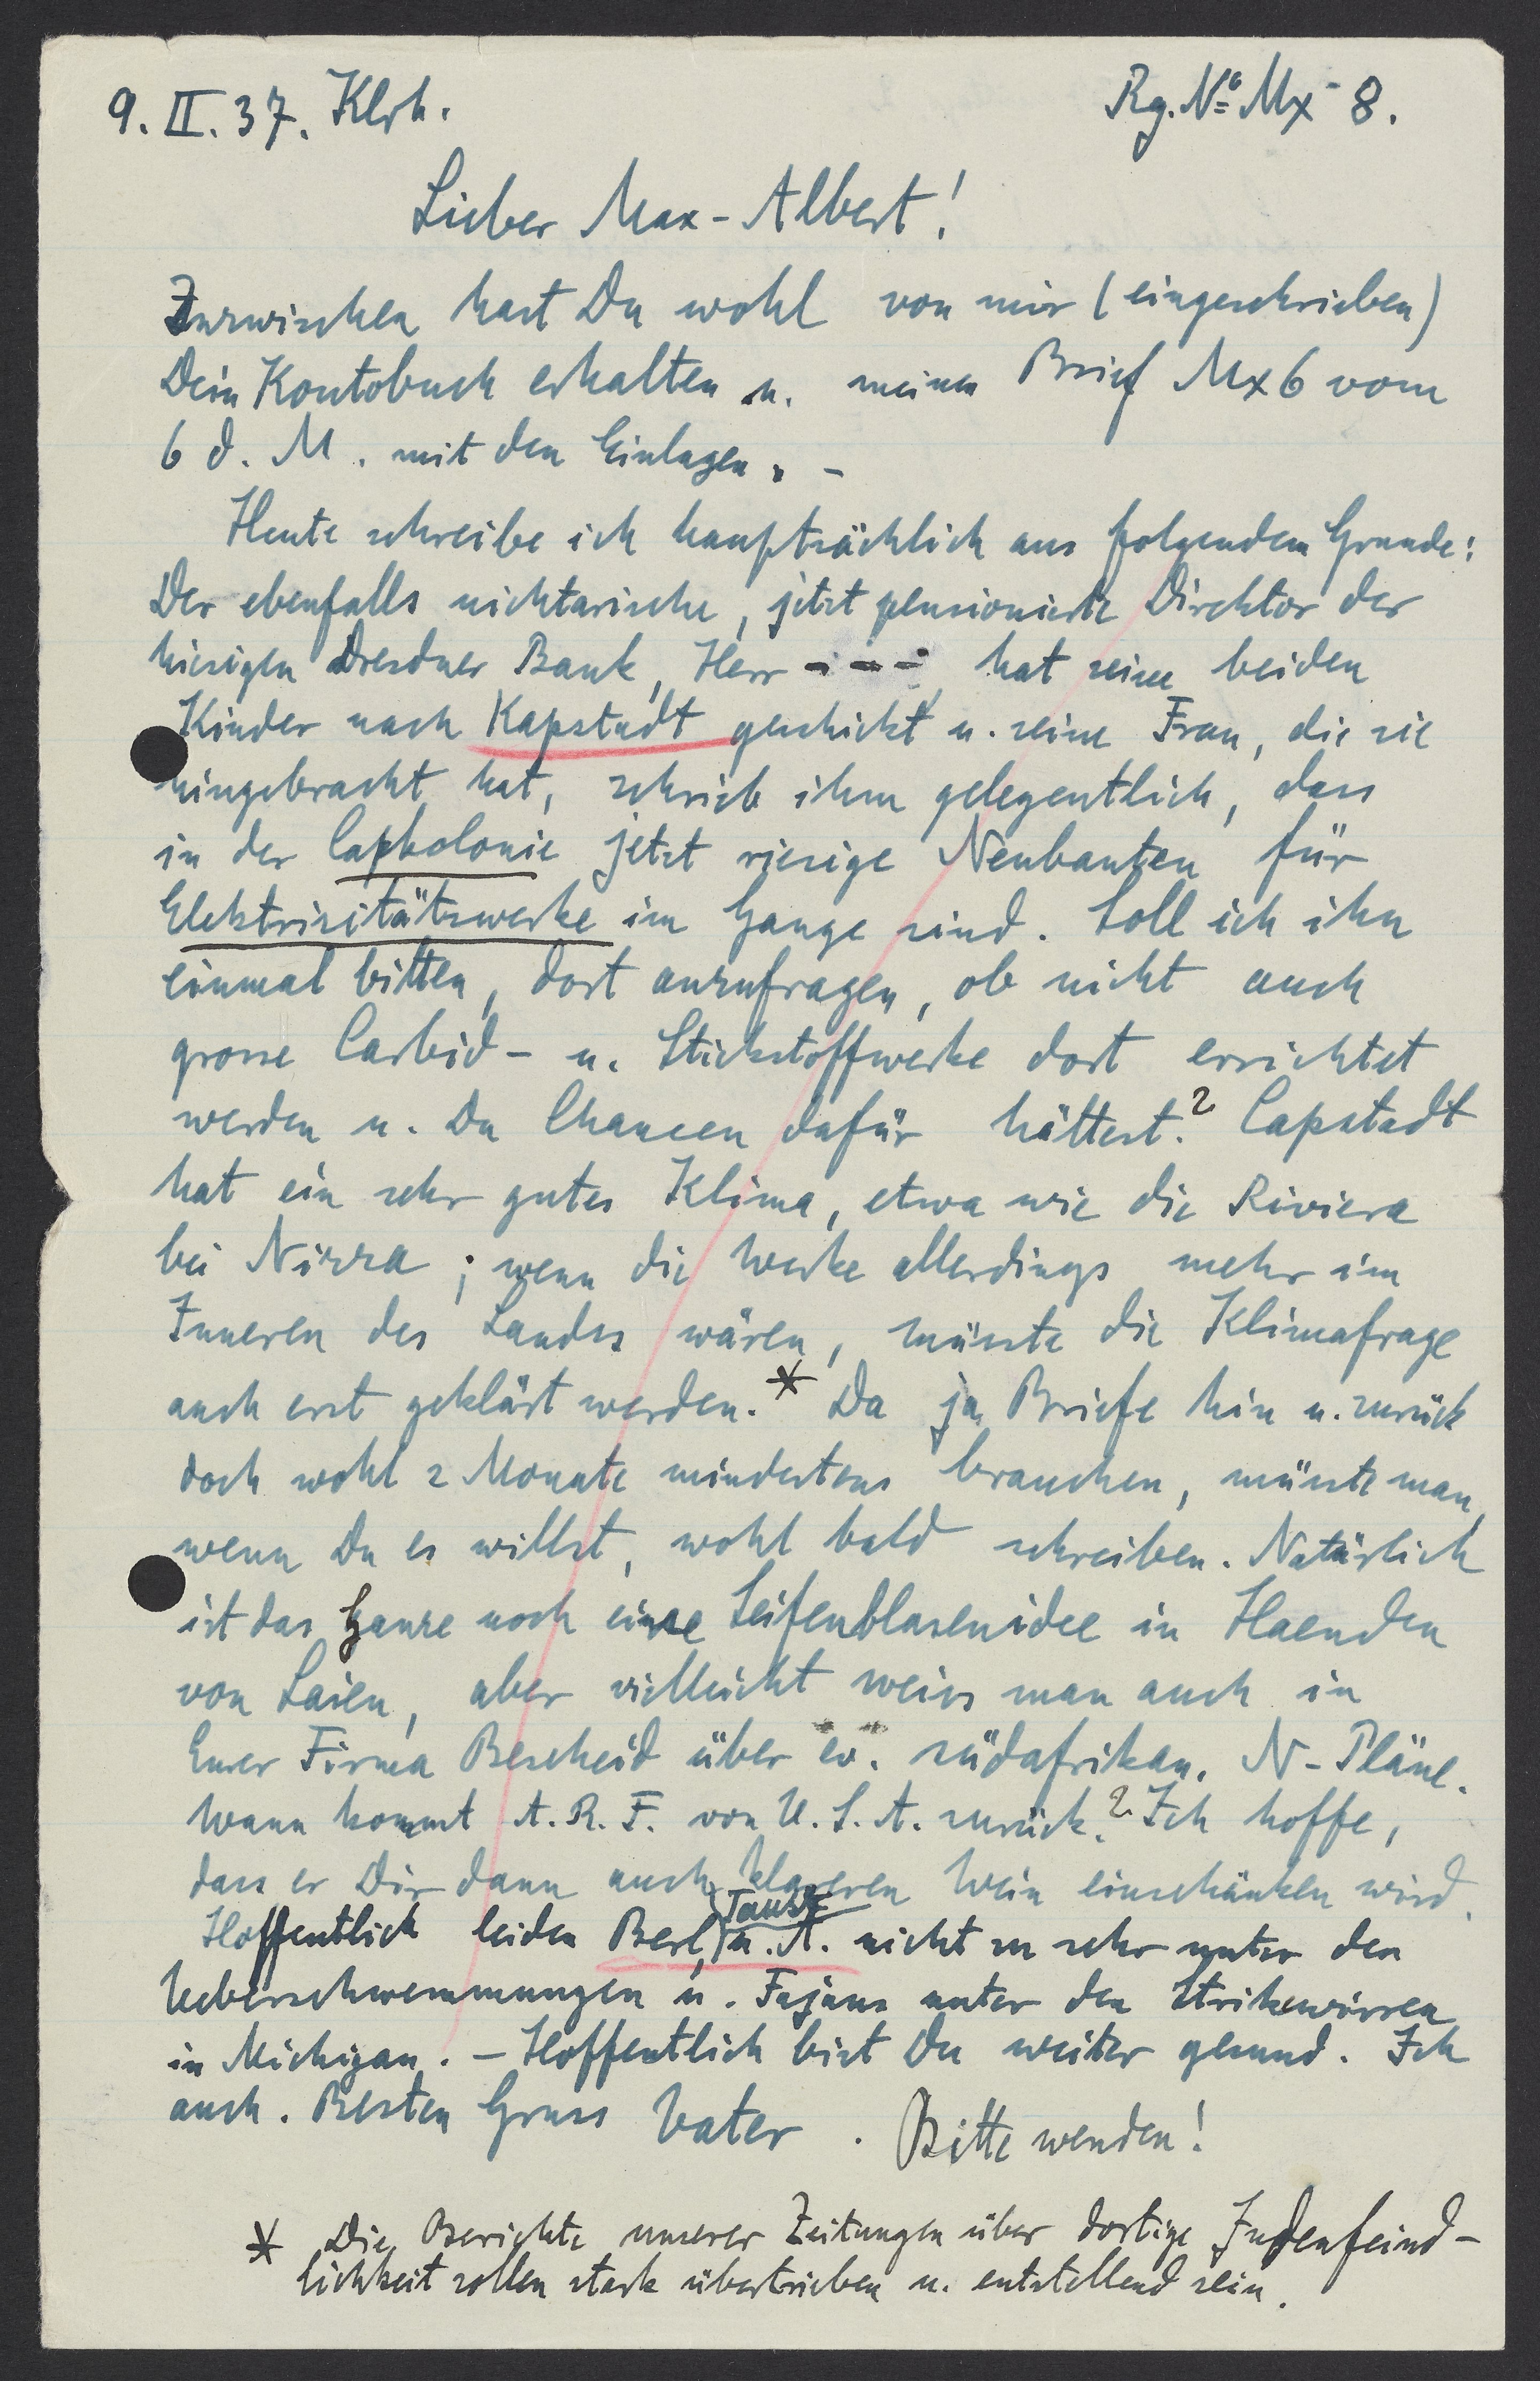 9. II. 37. Klrh.
Rg. No Mx 8.
Lieber Max-Albert!
Inzwischen hast Du wohl von mir (eingeschrieben)
Dein Kontobuch erhalten u. meinen Brief Mx 6 vom
6 d. M. mit den Einlagen. -
Heute schreibe ich hauptsächlich aus folgendem Grunde:
Der ebenfalls nichtarische, jetzt pensionierte Direktor der
hiesigen Dresdner Bank, Herr - - - , hat seine beiden
Kinder nach Kapstadt geschickt u. seine Frau, die sie
hingebracht hat, schrieb ihm gelegentlich, dass
in der Capkolonie jetzt riesige Neubauten für
Elektrizitätswerke im Gange sind. Soll ich ihn
einmal bitten, dort anzufragen, ob nicht auch
grosse Carbid- u. Stickstoffwerke dort errichtet
werden u. Du Chancen dafür hättest? Capstadt
hat ein sehr gutes Klima, etwa wie die Riviera
bei Nizza; wenn die Werke allerdings mehr im
Inneren des Landes wären, müsste die Klimafrage
auch erst geklärt werden.* Da ja Briefe hin u. zurück
doch wohl 2 Monate mindestens brauchen, müsste man,
wenn Du es willst, wohl bald schreiben. Natürlich
ist das Ganze noch eine Seifenblasenidee in Haenden
von Laien, aber vielleicht weiss man auch in
Eurer Firma Bescheid über ev. südafrikan. N-Pläne.
Wann kommt A. R. F. von U. S. A. zurück? Ich hoffe,
dass er Dir dann auch klareren Wein einschänken wird.
Tausz
Hoffentlich leiden Berl, u. A. nicht zu sehr unter den
Ueberschwemmungen u. Fajans unter den Strikewirren
in Michigan. - Hoffentlich bist Du weiter gesund. Ich
auch. Besten Gruss Vater. Bitte wenden!
* Die Berichte unserer Zeitungen über dortige Judenfeind-
lichkeit sollen stark übertrieben u. entstellend sein.